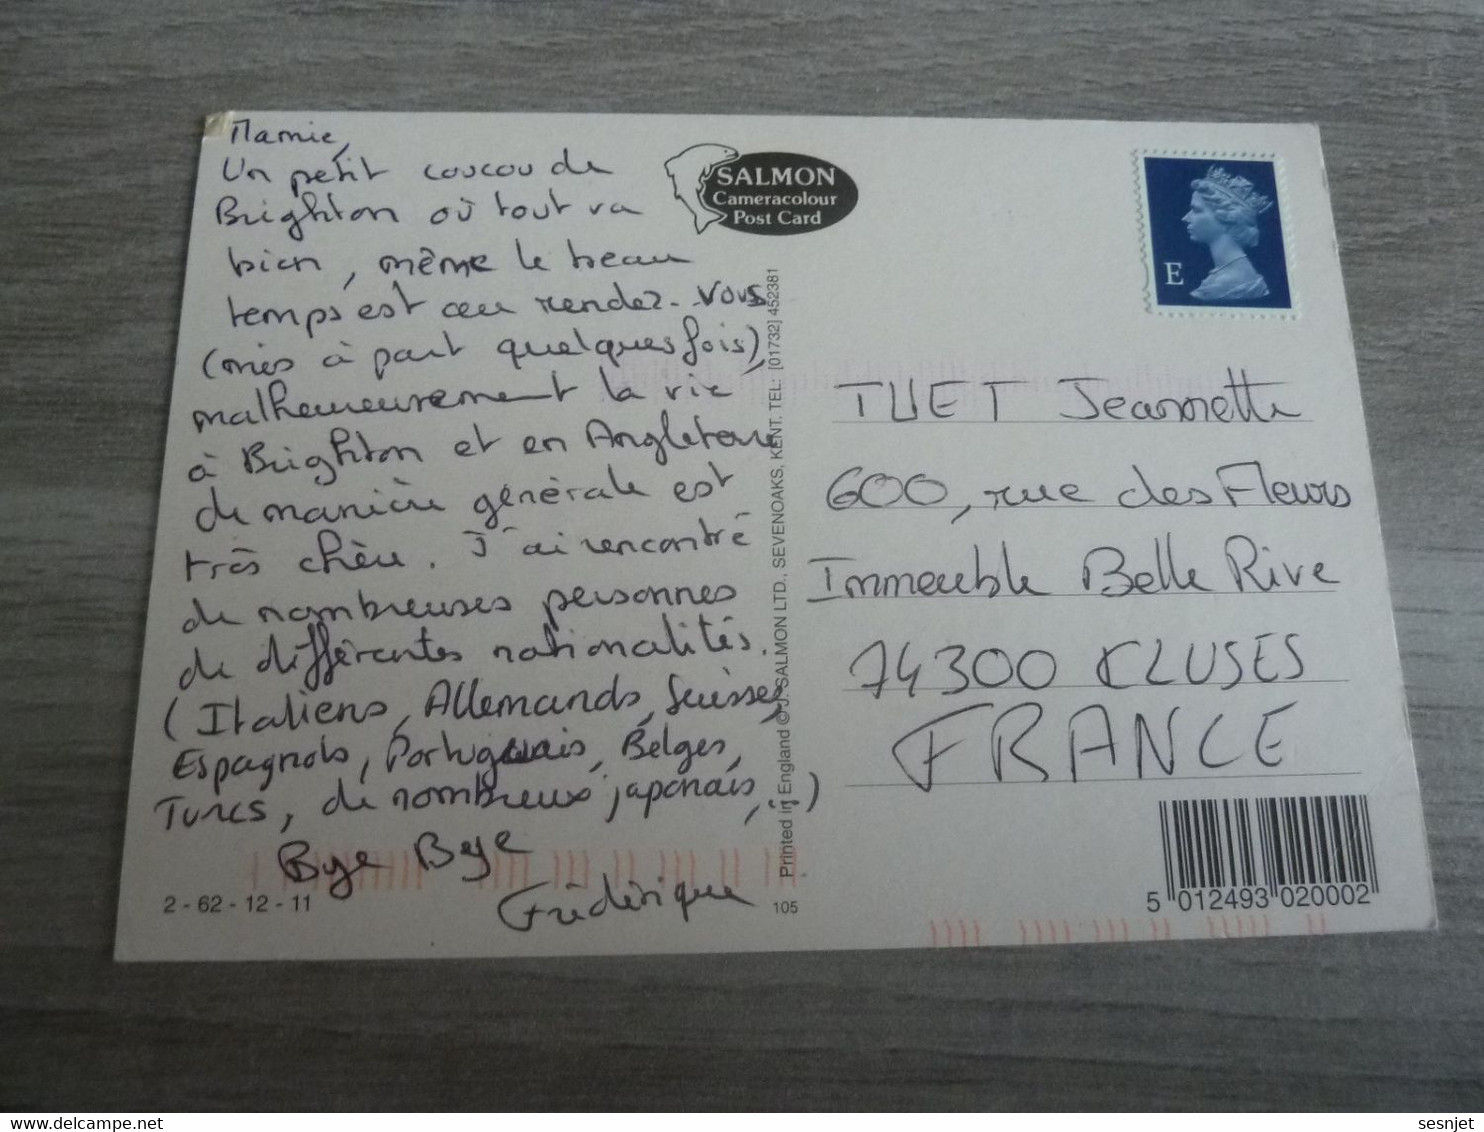 Mamie,
Un petit coucou de
Brighton où tout va
bien, même le beau
temps est au rendez-vous
(mis à part quelques fois),
malheureusement la vie
à Brighton et en Angleterre
de manière générale est
très chère. J'ai rencontré
de nombreuses personnes
de différentes nationalités.
(Italiens, Allemands, Suisses,
Espagnols, Portugais, Belges,
Turcs, de nombreux japonais, ...)
Bye Bye
Frédérique
2 - 62 - 12 - 11
SALMON
Cameracolour
Post Card
Printed in England © J. SALMON LTD., SEVENOAKS, KENT. TEL: [01732] 452381
105
E
TUET Jeannette
600, rue des Fleurs
Immeuble Belle Rive
74300 CLUSES
FRANCE
5 012493 020002
sesnjet